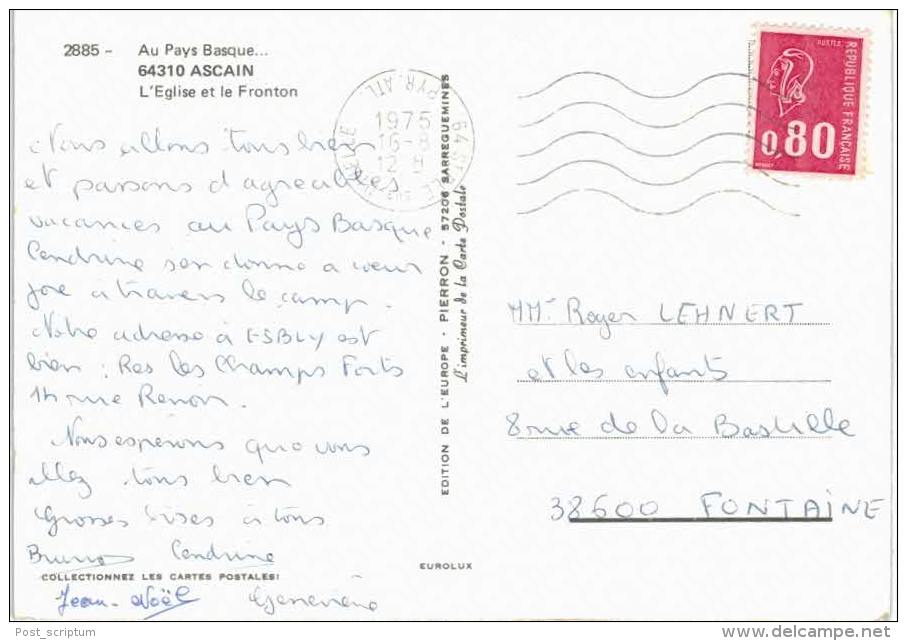 2885 - Au Pays Basque...
64310 ASCAIN
L'Eglise et le Fronton
Nous allons tous bien
et passons d'agréables
vacances au Pays Basque
Cendrine s'en donne a cœur
joie à travers le camp.
Notre adresse à ESBLY est
bien : Res les Champs Forts
14 rue Renoir.
Nous espérons que vous
allez tous bien
Grosses bises à tous
Bruno Cendrine
COLLECTIONNEZ LES CARTES POSTALES!
Jean-Noël Geneviève
EDITION DE L'EUROPE - PIERRON - 57206 SARREGUEMINES
L'imprimeur de la Carte Postale
EUROLUX
1975
16-8
12 H
PYR. ATL.
POSTES
REPUBLIQUE FRANÇAISE
0,80
MMr Roger LEHNERT
et les enfants
8 rue de la Bastille
38600 FONTAINE
Post_scriptum
delcampe.net